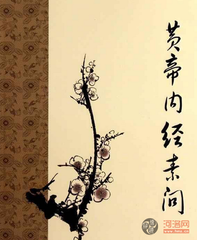 黄帝内经素问